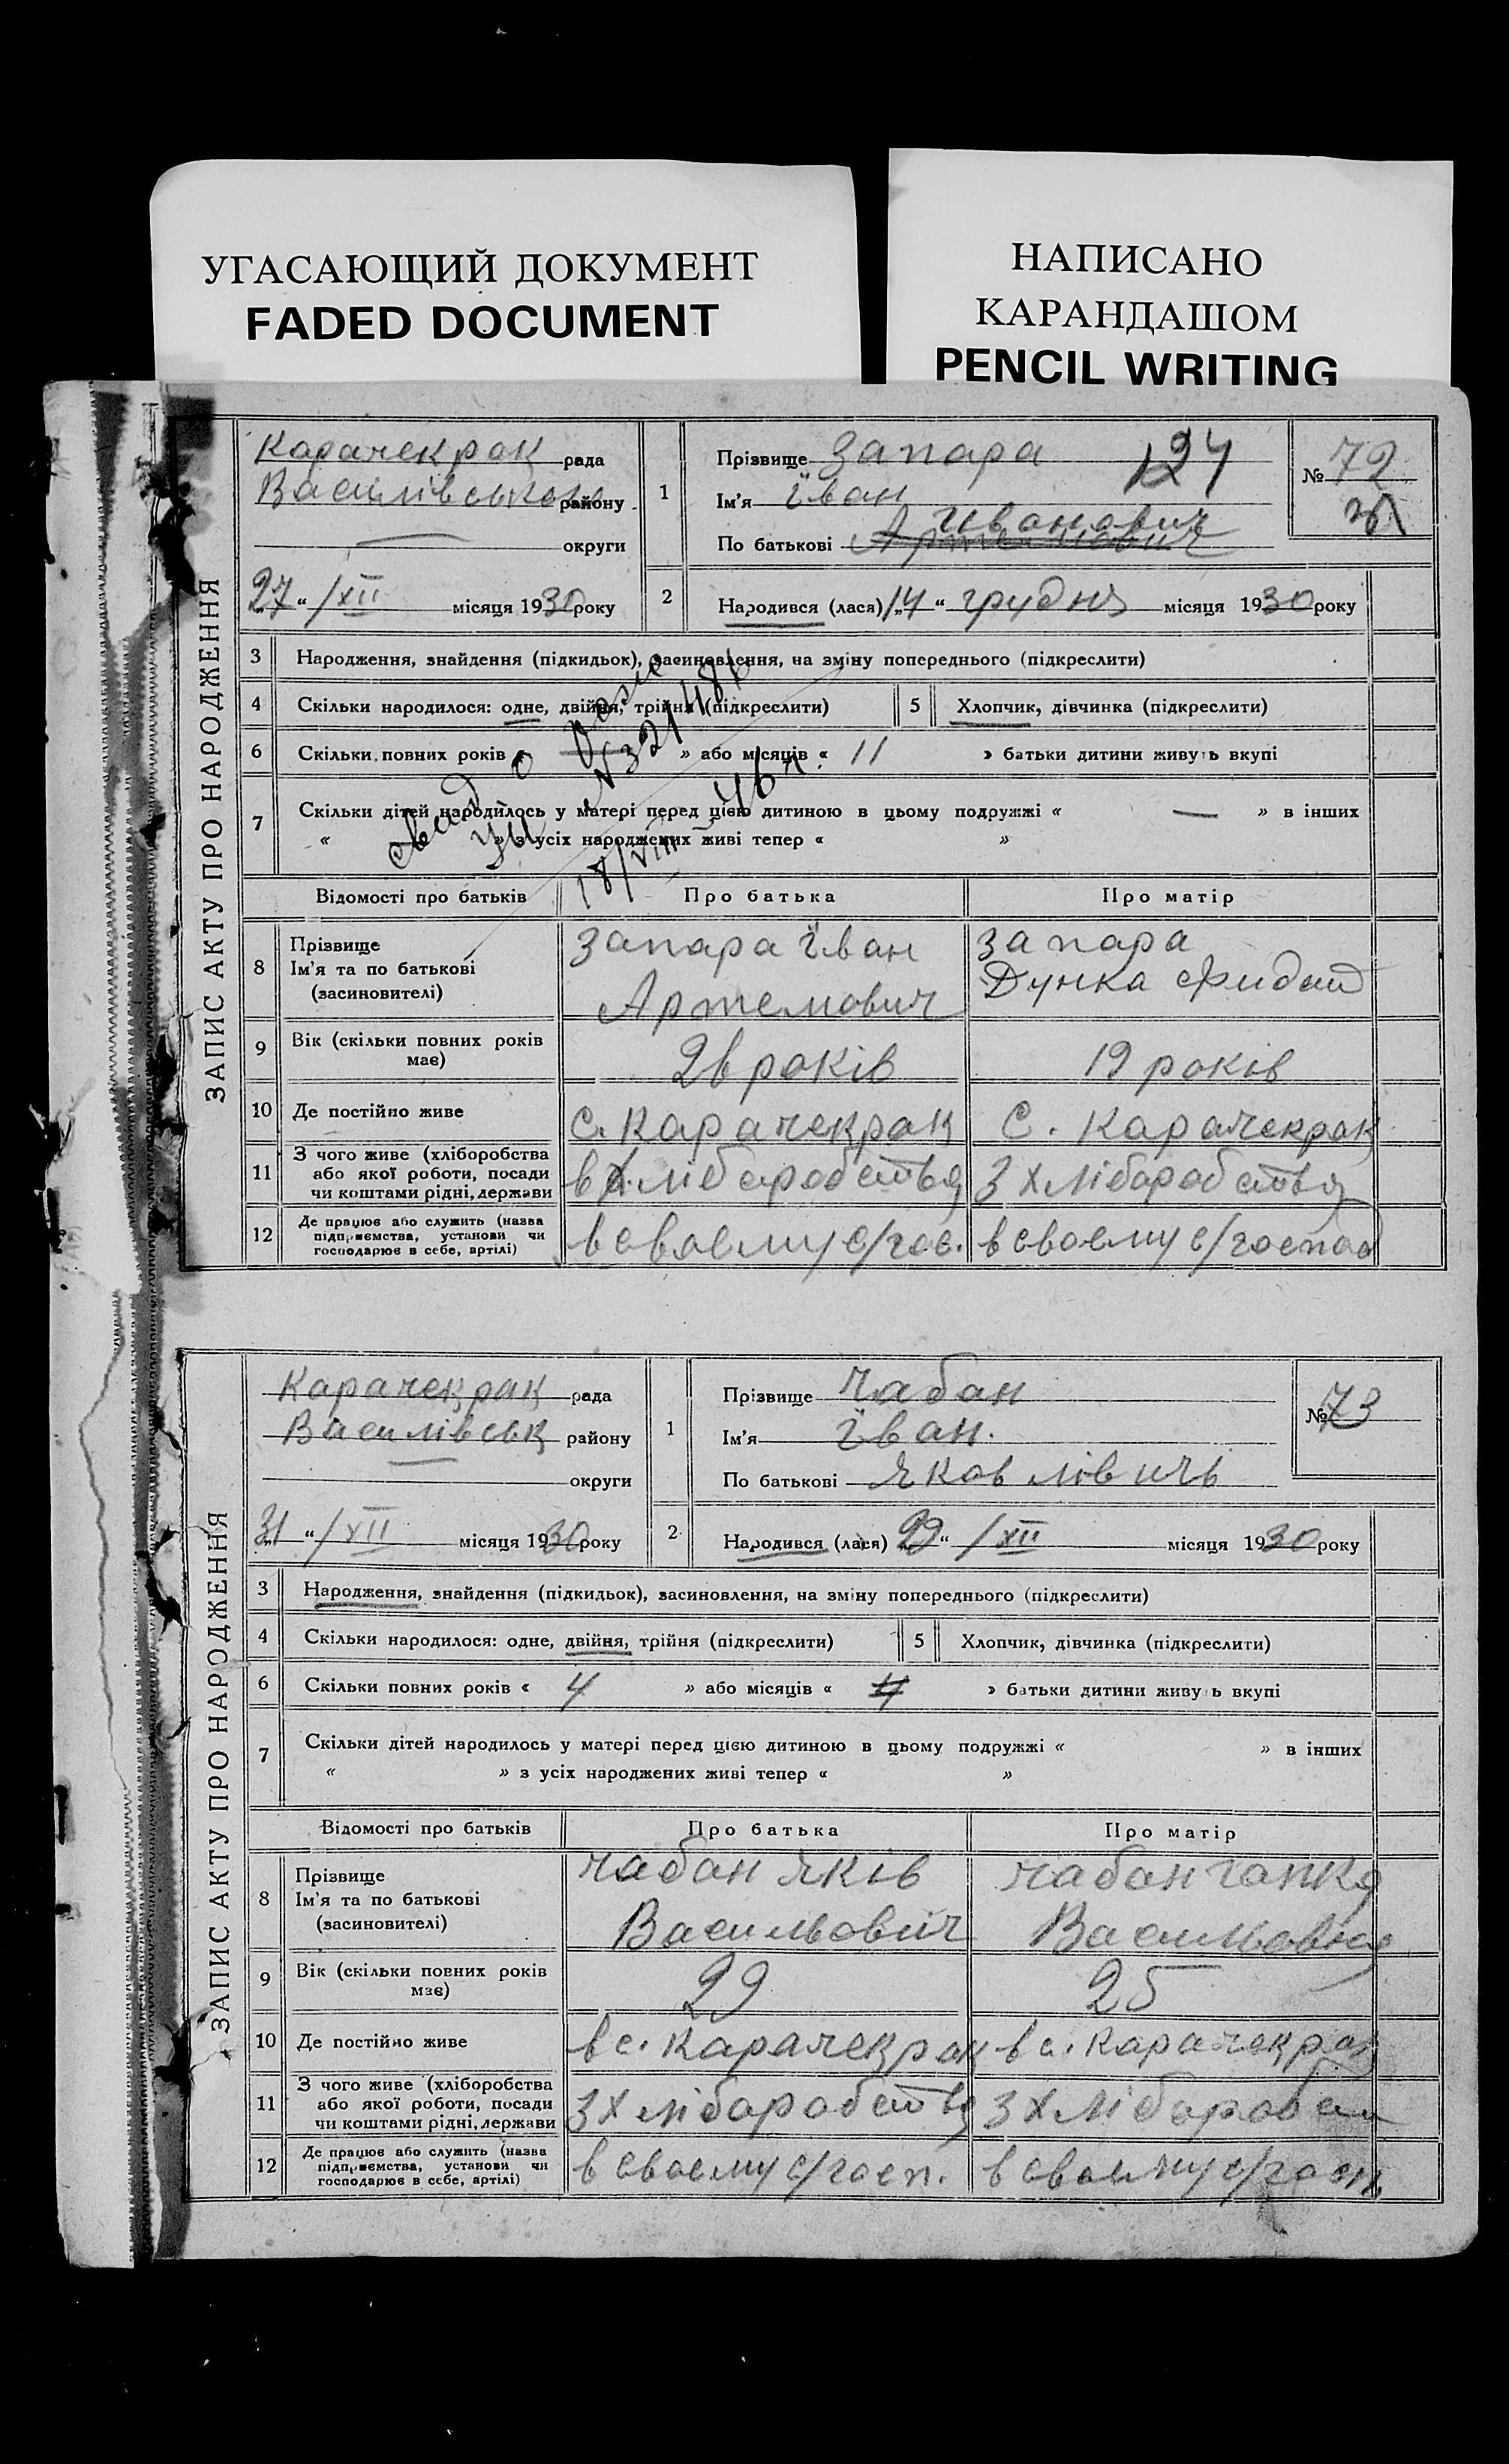 УГАСАЮЩИЙ ДОКУМЕНТ
FADED DOCUMENT
НАПИСАНО
КАРАНДАШОМ
PENCIL WRITING
ЗАПИС АКТУ ПРО НАРОДЖЕННЯ
Карачекрак рада
Василівського району
округи
27 " /XII місяця 1930 року
1
Прізвище Запара 124
Ім'я Їван
Їванович
По батькові Артемович
№ 72
2
Народився (лася) 14 " грудня місяця 1930 року
3 Народження, знайдення (підкидьок), засиновлення, на зміну попереднього (підкреслити)
4 Скільки народилося: одне, двійня, трійня (підкреслити) 5 Хлопчик, дівчинка (підкреслити)
6 Скільки повних років « » або місяців « 11 » батьки дитини живуть вкупі
7 Скільки дітей народилось у матері перед цією дитиною в цьому подружжі « — » в інших
« » з усіх народжених живі тепер « »
18/VIII – 46 г.
Відомості про батьків Про батька Про матір
8 Прізвище
Ім'я та по батькові
(засиновителі)
Запара Їван
Артемович
Запара
Дунка
9 Вік (скільки повних років
має)
26 років 19 років
10 Де постійно живе с. Карачекрак с. Карачекрак
11 З чого живе (хліборобства
або якої роботи, посади
чи коштами рідні, держави
в хліборобства З хліборобства
12 Де працює або служить (назва
підприємства, установи чи
господарює в себе, артілі)
в своєму с/гос. в своєму с/господ
ЗАПИС АКТУ ПРО НАРОДЖЕННЯ
Карачекрак рада
Василівськ району
округи
31 " /XII місяця 1930 року
1
Прізвище Чабан
Ім'я Їван.
По батькові Яковлівичь
№ 73
2
Народився (лася) 29 " /XII місяця 1930 року
3 Народження, знайдення (підкидьок), засиновлення, на зміну попереднього (підкреслити)
4 Скільки народилося: одне, двійня, трійня (підкреслити) 5 Хлопчик, дівчинка (підкреслити)
6 Скільки повних років « 4 » або місяців « 4 » батьки дитини живуть вкупі
7 Скільки дітей народилось у матері перед цією дитиною в цьому подружжі « » в інших
« » з усіх народжених живі тепер « »
Відомості про батьків Про батька Про матір
8 Прізвище
Ім'я та по батькові
(засиновителі)
Чабан Яків
Васильович
Чабан Гапка
Васильовна
9 Вік (скільки повних років
має)
29 25
10 Де постійно живе в с. Карачекрак в с. Карачекрак
11 З чого живе (хліборобства
або якої роботи, посади
чи коштами рідні, держави
З хліборобства З хліборобст
12 Де працює або служить (назва
підприємства, установи чи
господарює в себе, артілі)
в своєму с/госп. в своєму с/госп.